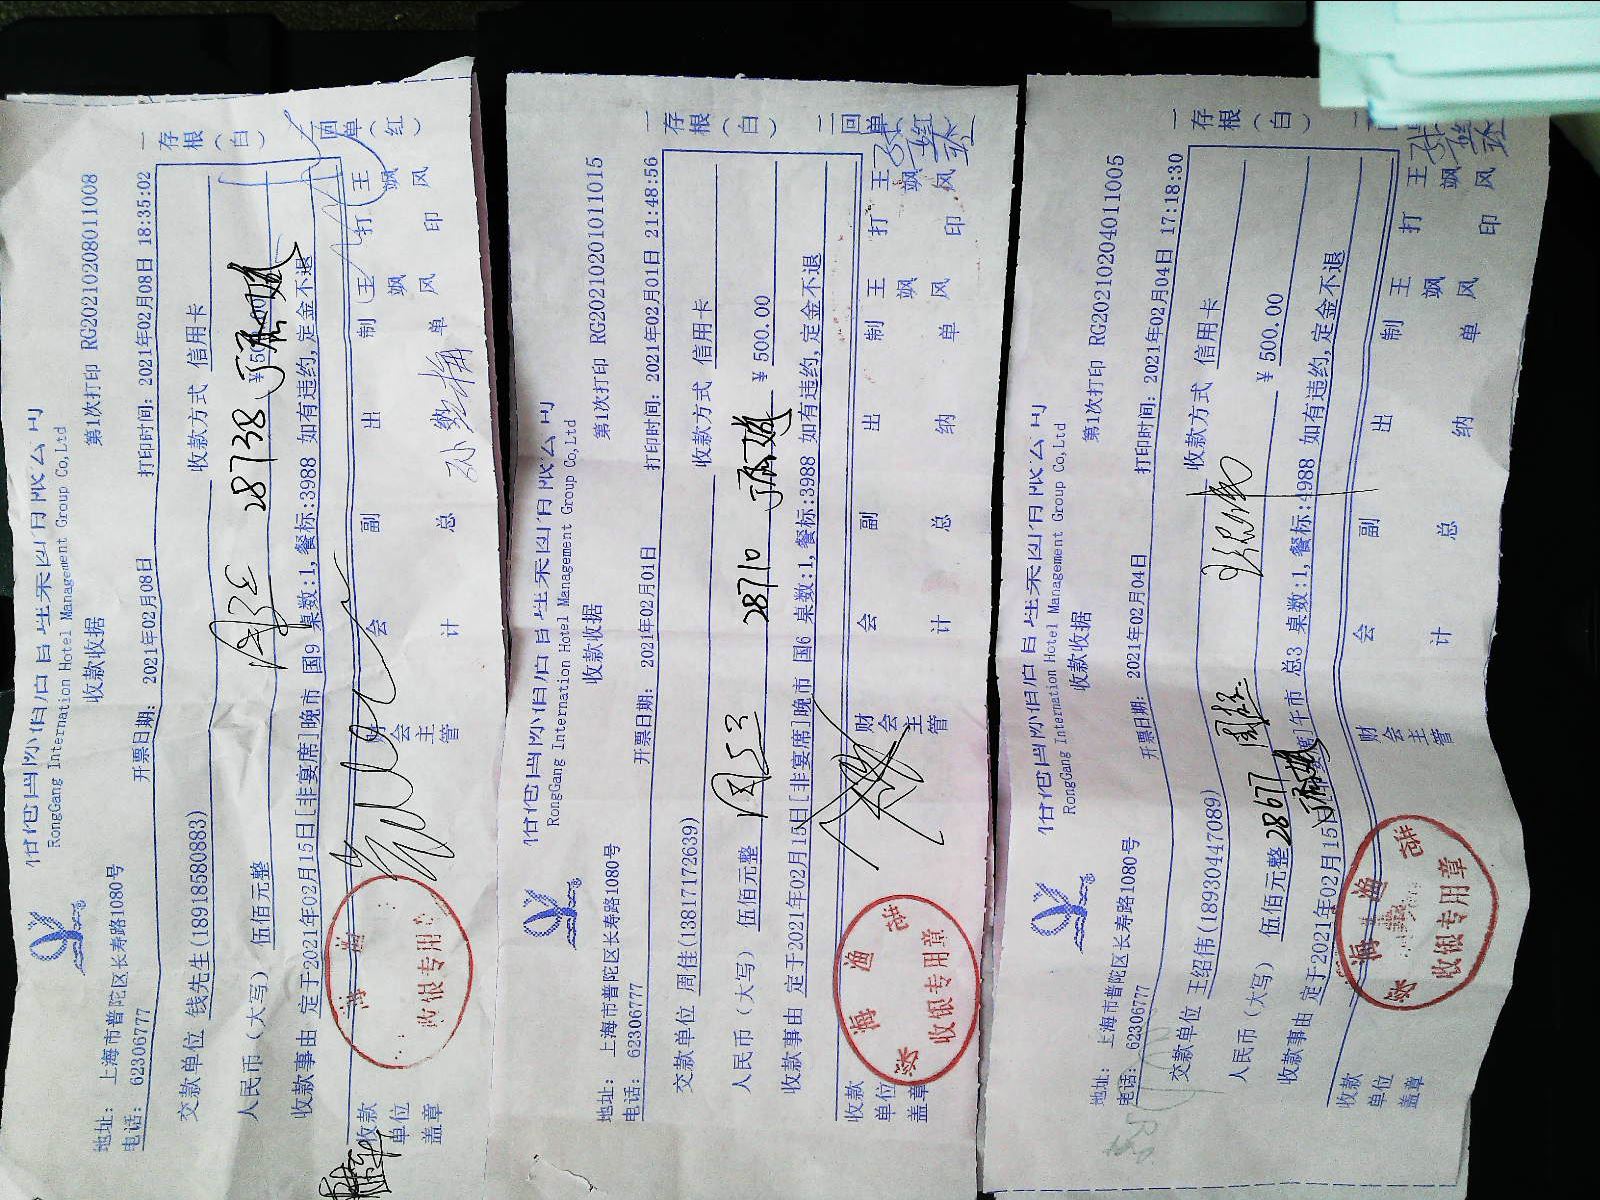 RongGang International Hotel Management Group Co,Ltd
收款收据
第1次打印 RG20210208011008
地址： 上海市普陀区长寿路1080号
电话： 62306777
开票日期： 2021年02月08日
打印时间：2021年02月08日 18:35:02
一存根（白）
二回单（红）
交款单位 钱先生(18918580883)
收款方式 信用卡
人民币（大写） 伍佰元整
28738
收款事由 定于2021年02月15日[非宴席]晚市 国9 桌数:1,餐标:3988 如有违约,定金不退
收款单位盖章
财会主管
会计
副总
出
制单
王飒风
打印
王飒风
收银专用
RongGang International Hotel Management Group Co,Ltd
收款收据
第1次打印 RG20210201011015
地址： 上海市普陀区长寿路1080号
电话： 62306777
开票日期： 2021年02月01日
打印时间：2021年02月01日 21:48:56
一存根（白）
二回单红
交款单位 周佳(13817172639)
收款方式 信用卡
人民币（大写） 伍佰元整
28710
¥ 500.00
收款事由 定于2021年02月15日[非宴席]晚市 国6 桌数:1,餐标:3988 如有违约,定金不退
收款单位盖章
财会主管
会计
副总
出纳
制单
王飒风
打印
王飒风
收银专用章
RongGang International Hotel Management Group Co,Ltd
收款收据
第1次打印 RG20210204011005
地址： 上海市普陀区长寿路1080号
电话： 62306777
开票日期： 2021年02月04日
打印时间：2021年02月04日 17:18:30
一存根（白）
交款单位 王绍伟(18930447089)
收款方式 信用卡
人民币（大写） 伍佰元整
28677
¥ 500.00
收款事由 定于2021年02月15日 午市 总3 桌数:1,餐标:4988 如有违约,定金不退
收款单位盖章
财会主管
会计
副总
出纳
制单
王飒风
打印
王飒风
收银专用章